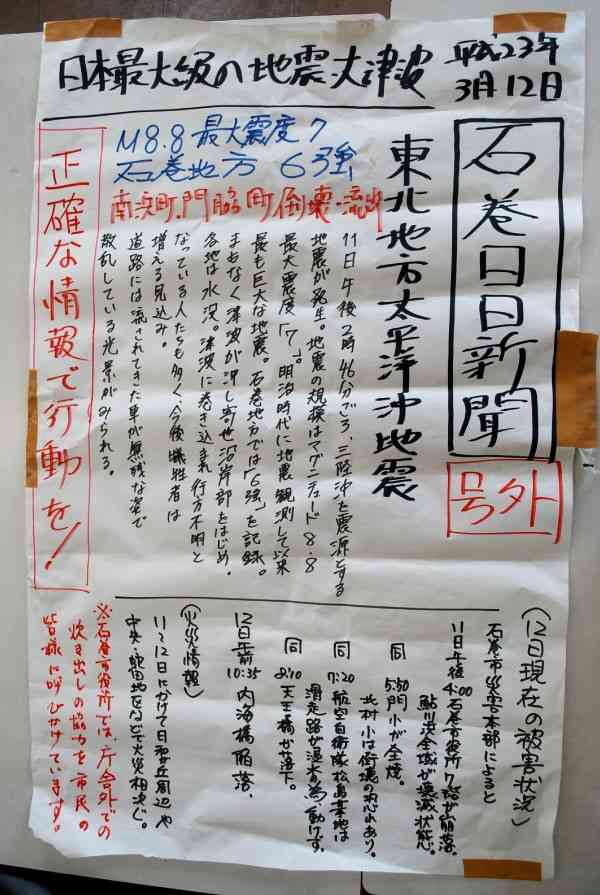 日本最大級の地震・大津波
平成23年
3月12日
石巻日日新聞
号外
東北地方太平洋沖地震
M8.8 最大震度7
石巻地方 6強
南浜町・門脇町倒壊・流出
11日午後2時46分ごろ、三陸沖を震源とする
地震が発生。地震の規模はマグニチュード8.8
最大震度「7」。明治時代に地震観測して以来
最も巨大な地震。石巻地方では「6強」を記録。
まもなく津波が押し寄せ沿岸部をはじめ、
各地は水没。津波に巻き込まれ行方不明と
なっている人たちも多く、今後犠牲者は
増える見込み。
道路には流されてきた車が無残な姿で
散乱している光景がみられる。
正確な情報で行動を!
(12日現在の被害状況)
石巻市災害本部によると
11日午後4:00 石巻市役所 が崩落。
鮎川浜全域が壊滅状態。
同 5:50 門小が全焼。
北村小は倒壊の恐れあり。
同 7:20 航空自衛隊松島基地は
滑走路が浸水の為、動けず。
同 8:10 天王橋が落下。
12日午前10:35 内海橋陥落。
(火災情報)
11〜12日にかけて日和が丘周辺や
中央・蛇田地区などで火災相次ぐ。
※石巻市役所では、庁舎外での
炊き出しの協力を市民の
皆様に呼びかけています。